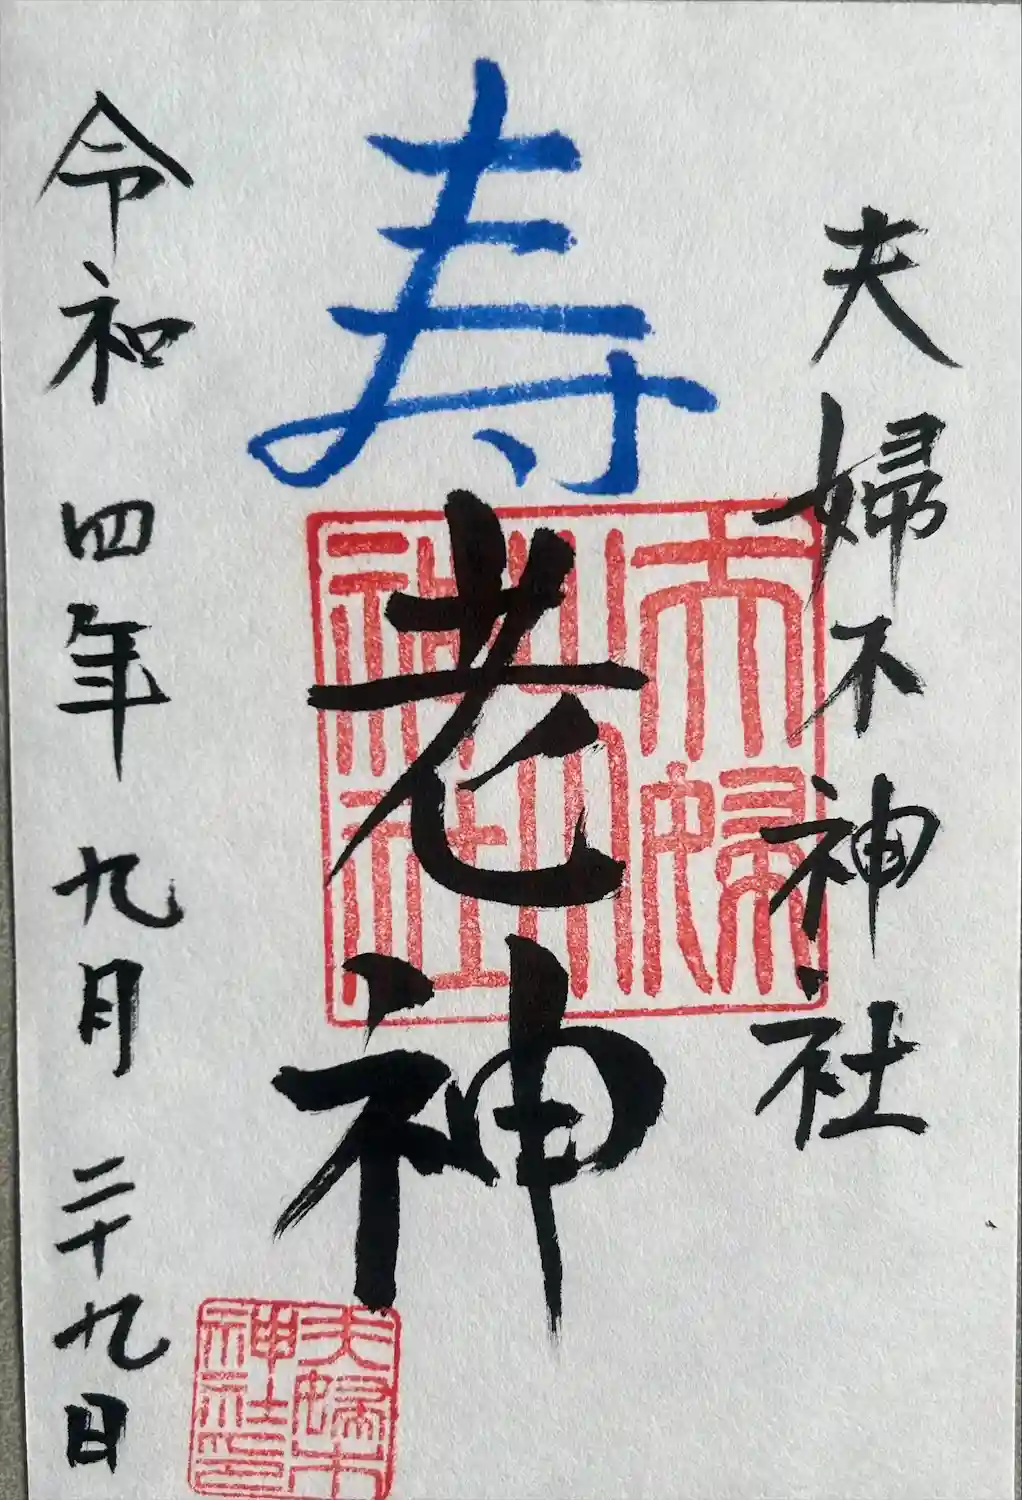 夫婦木神社
寿
老神
夫婦木神社
令和四年九月二十九日
夫婦木神社印